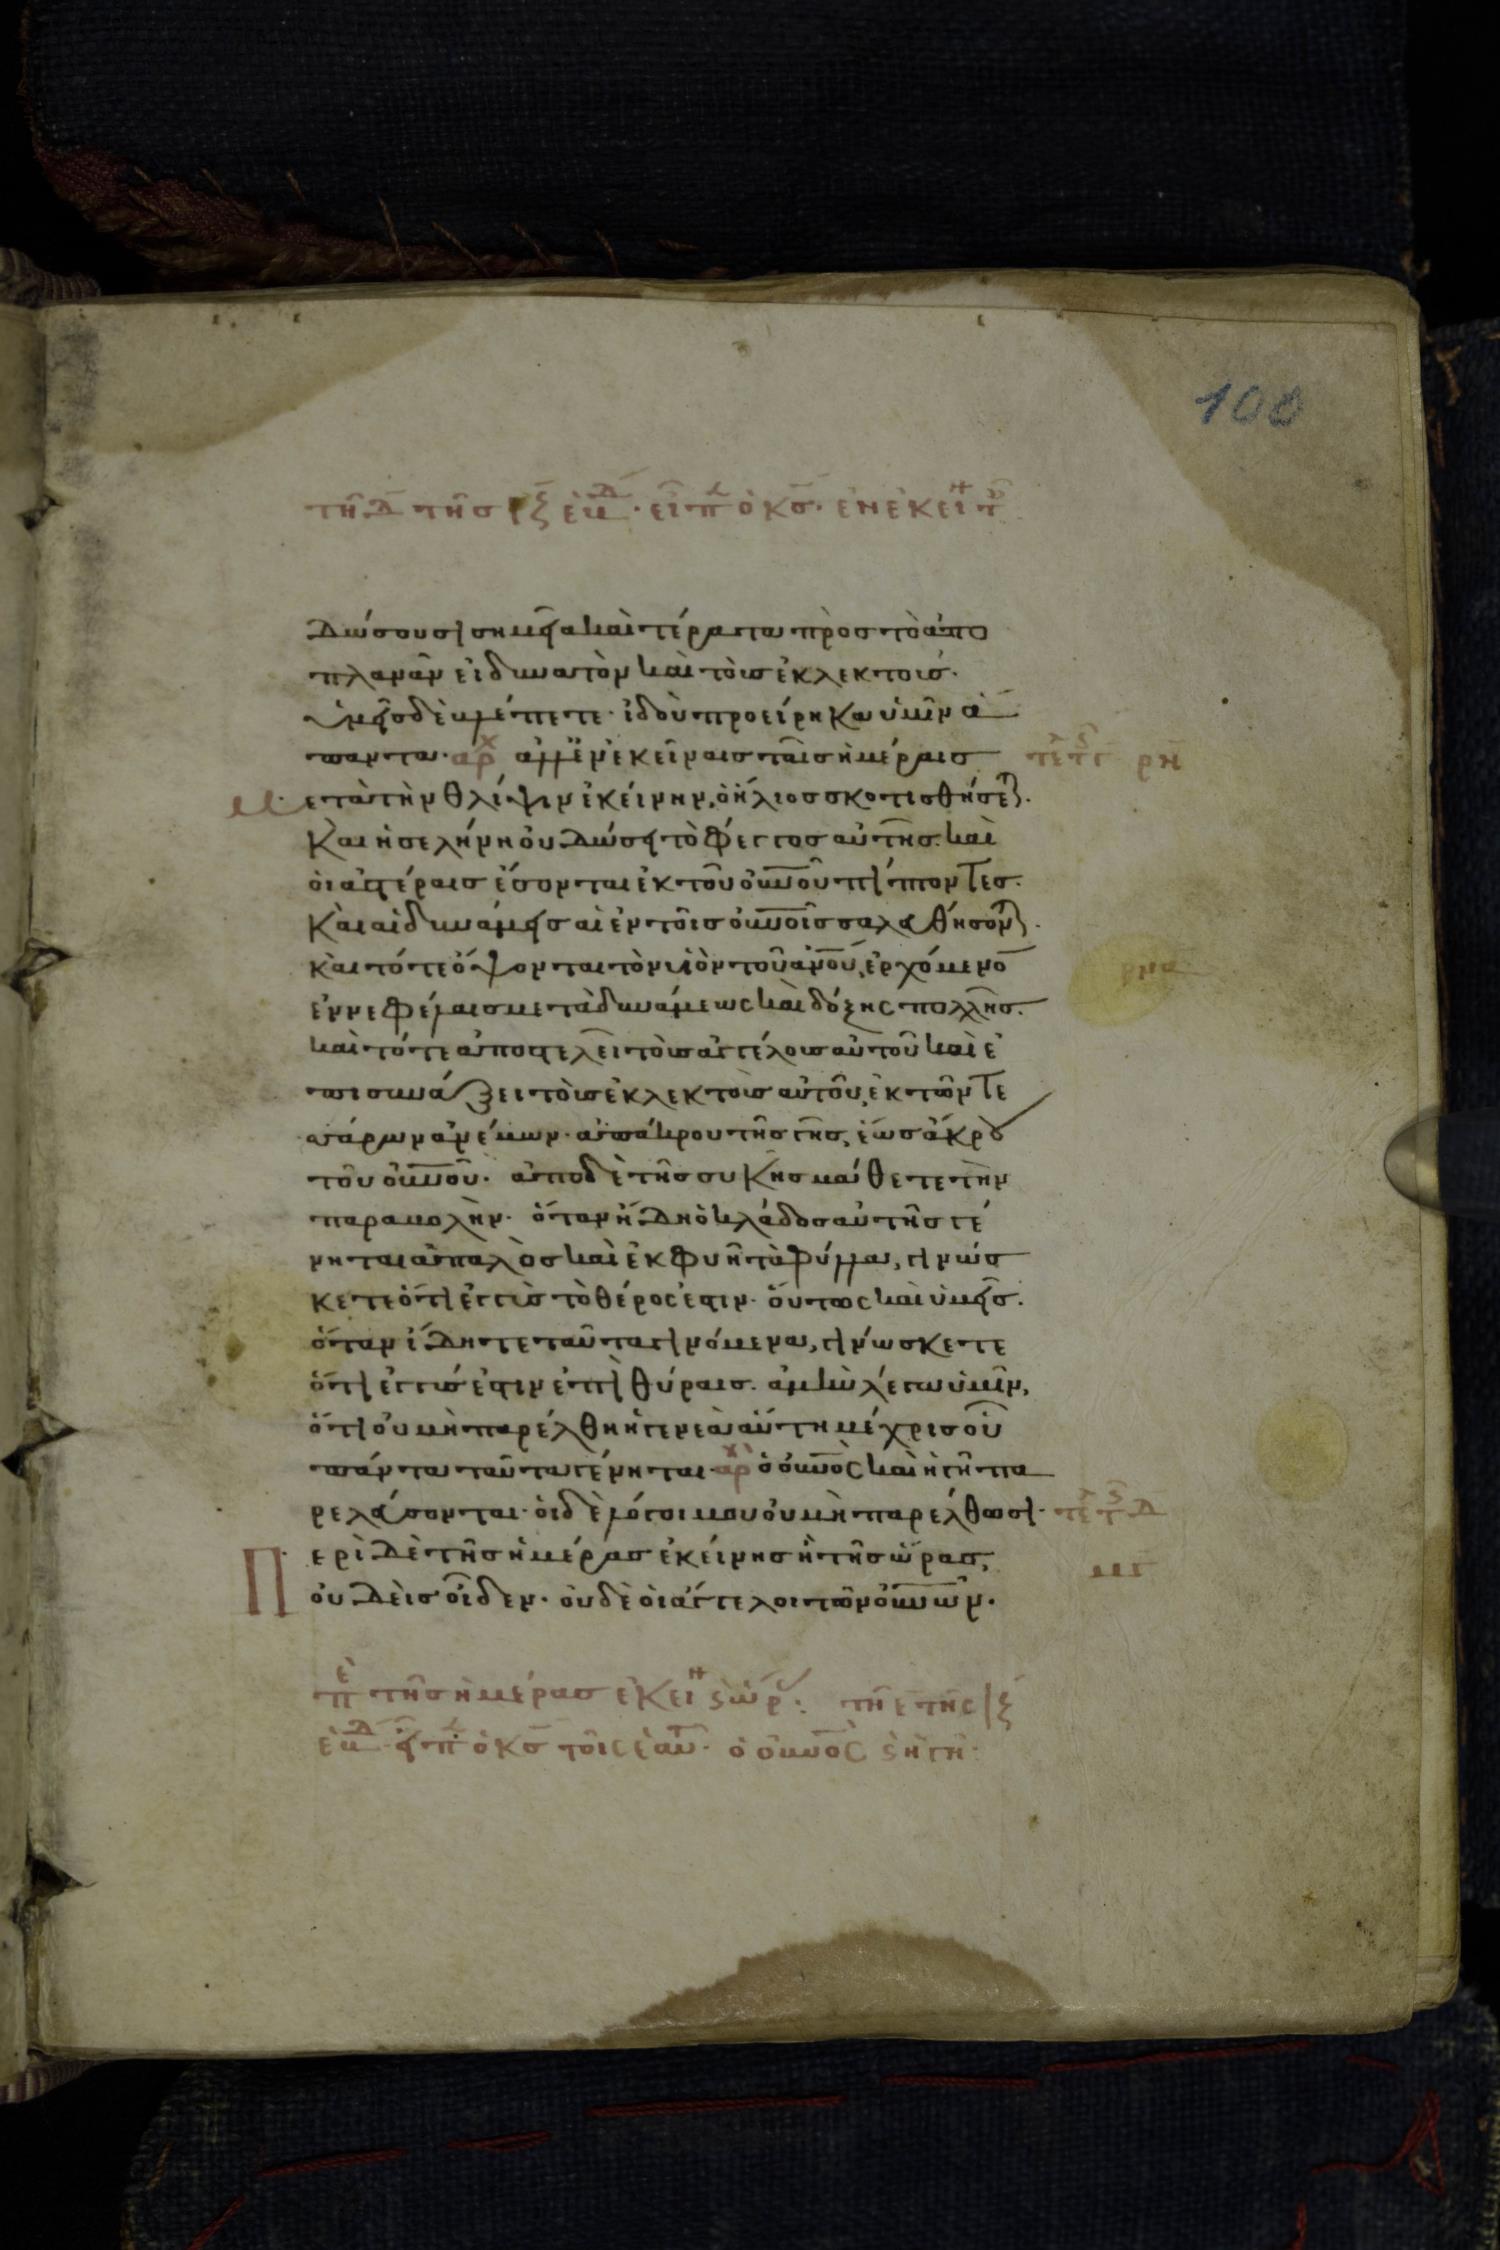 100
τῆ δ τῆς ιξ ἑβδ· εἶπ ὁ κς· ἐν ἐκείν τ
δώσουσι σημεῖα καὶ τέρατα πρὸς τὸ ἀπο
πλανᾶν εἰ δυνατὸν καὶ τοὺς ἐκλεκτούς·
ὑμεῖς δὲ βλέπετε· ἰδοὺ προείρηκα ὑμῖν ἅ
παντα· ἀρχ ἀλλ' ἐν ἐκείναις ταῖς ἡμέραις
μετὰ τὴν θλίψιν ἐκείνην, ὁ ἥλιος σκοτισθήσεται·
καὶ ἡ σελήνη οὐ δώσει τὸ φέγγος αὐτῆς· καὶ
οἱ ἀστέρες ἔσονται ἐκ τοῦ οὐνοῦ πίπτοντες·
καὶ αἱ δυνάμεις αἱ ἐν τοῖς οὐνοῖς σαλευθήσονται·
καὶ τότε ὄψονται τὸν υἱὸν τοῦ ἀνοῦ, ἐρχόμενον
ἐν νεφέλαις μετὰ δυνάμεως καὶ δόξης πολλῆς·
καὶ τότε ἀποστελεῖ τοὺς ἀγγέλους αὐτοῦ καὶ ἐ
πισυνάξει τοὺς ἐκλεκτοὺς αὐτοῦ, ἐκ τῶν τε
σσάρων ἀνέμων· ἀπ' ἄκρου τῆς γῆς, ἕως ἄκρου
τοῦ οὐνοῦ· ἀπὸ δὲ τῆς συκῆς μάθετε τὴν
παραβολήν· ὅταν ἤδη ὁ κλάδος αὐτῆς γέ
νηται ἁπαλὸς καὶ ἐκφυῆ τὰ φύλλα, γινώσ
κετε ὅτι ἐγγὺς τὸ θέρος ἐστιν· οὕτως καὶ ὑμεῖς·
ὅταν ἴδητε ταῦτα γινόμενα, γινώσκετε
ὅτι ἐγγύς ἐστιν ἐπὶ θύραις· ἀμὴν λέγω ὑμῖν,
ὅτι οὐ μὴ παρέλθη ἡ γενεὰ αὕτη μέχρις οὗ
πάντα ταῦτα γένηται· ἀρχ ὁ οὐνὸς καὶ ἡ γῆ πα
ρελεύσονται· οἱ δὲ λόγοι μου οὐ μὴ παρέλθωσι·
Περὶ δὲ τῆς ἡμέρας ἐκείνης ἢ τῆς ὥρας,
οὐδεὶς οἶδεν· οὐδὲ οἱ ἄγγελοι τῶν οὐνῶν·
πε τῆς ἡμέρας ἐκείν ϛ ὥρ: τῆ ε τῆς ιξ
ἑβδ· εἶπ ὁ κς τοῖς ἑαυτ· ὁ οὐνὸς ϛ ἡ γῆ: